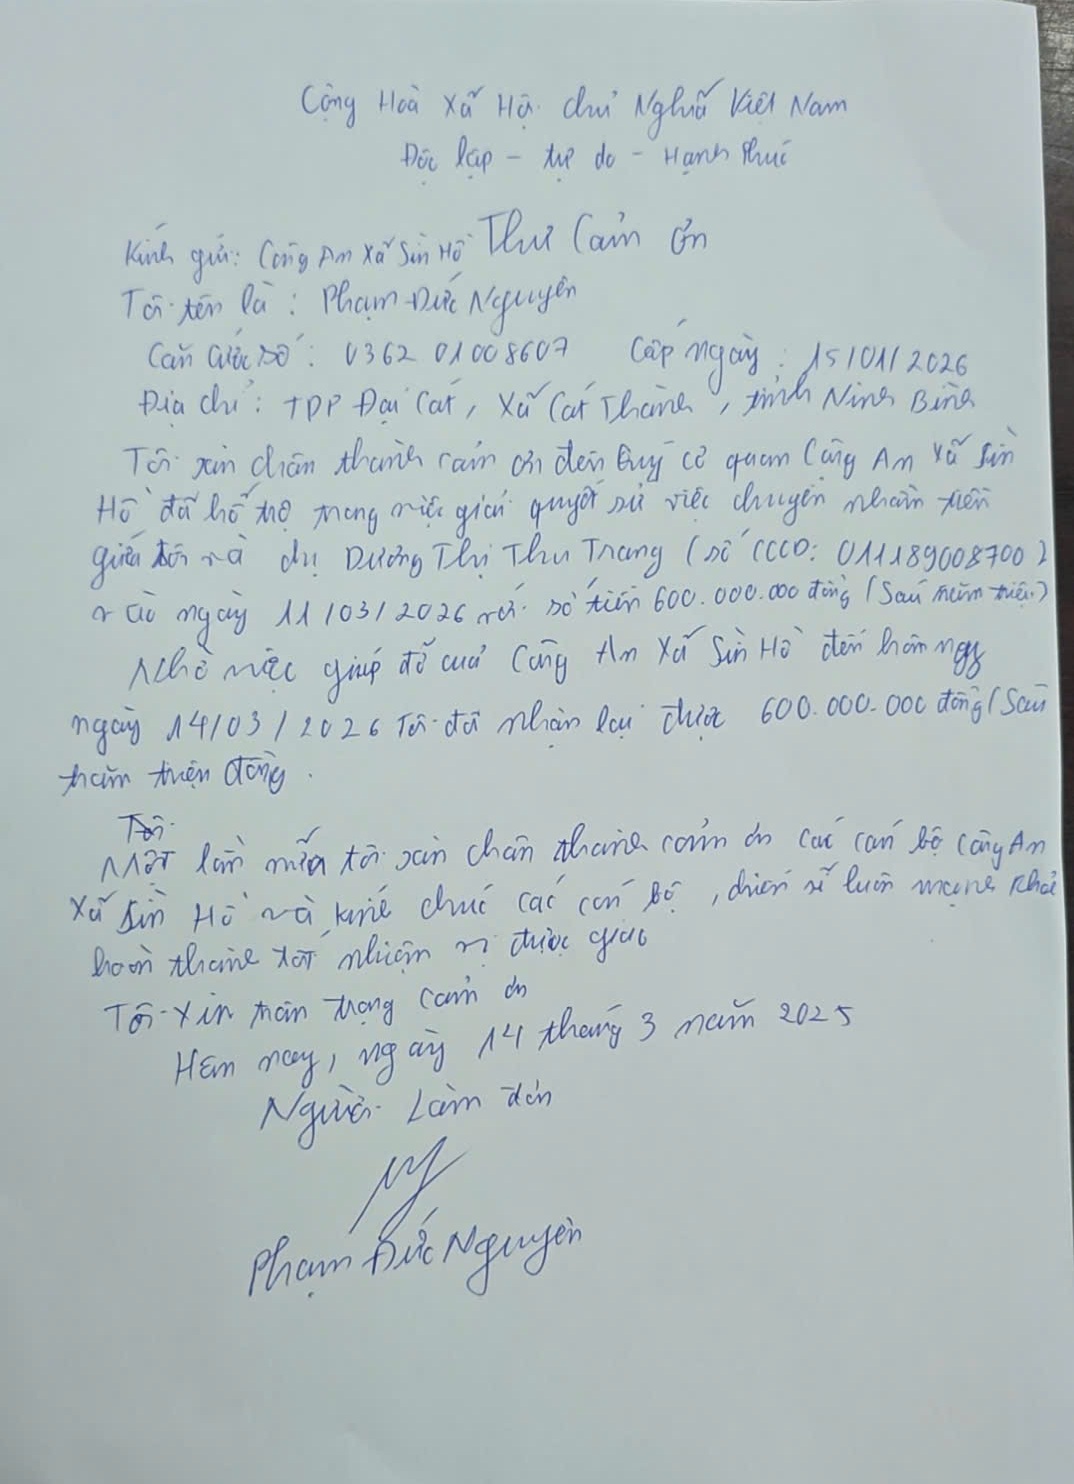 Cộng Hoà Xã Hội chủ Nghĩa Việt Nam
Độc lập - tự do - Hạnh Phúc
Thư Cảm Ơn
Kính gửi: Công An Xã Sìn Hồ
Tôi tên là : Phạm Đức Nguyên
Căn cước số : 036201008607 Cấp ngày : 15/01/2026
Địa chỉ : TDP Đại Cát, Xã Cát Thành, tỉnh Ninh Bình
Tôi xin chân thành cảm ơn đến Quý cơ quan Công An Xã Sìn
Hồ đã hỗ trợ trong việc giải quyết sự việc chuyển nhầm tiền
giữa tôi và chị Dương Thị Thu Trang (số CCCD: 011189008700)
vào ngày 11/03/2026 với số tiền 600.000.000 đồng (Sáu trăm triệu)
Nhờ việc giúp đỡ của Công An Xã Sìn Hồ đến hôm nay
ngày 14/03/2026 Tôi đã nhận lại được 600.000.000 đồng (Sáu
trăm triệu đồng .
Tôi
Một lần nữa tôi xin chân thành cảm ơn các cán bộ Công An
Xã Sìn Hồ và kính chúc các cán bộ, chiến sĩ luôn mạnh khoẻ
hoàn thành tốt nhiệm vụ được giao
Tôi xin trân trọng cảm ơn
Hôm nay, ngày 14 tháng 3 năm 2025
Người Làm đơn
Phạm Đức Nguyên